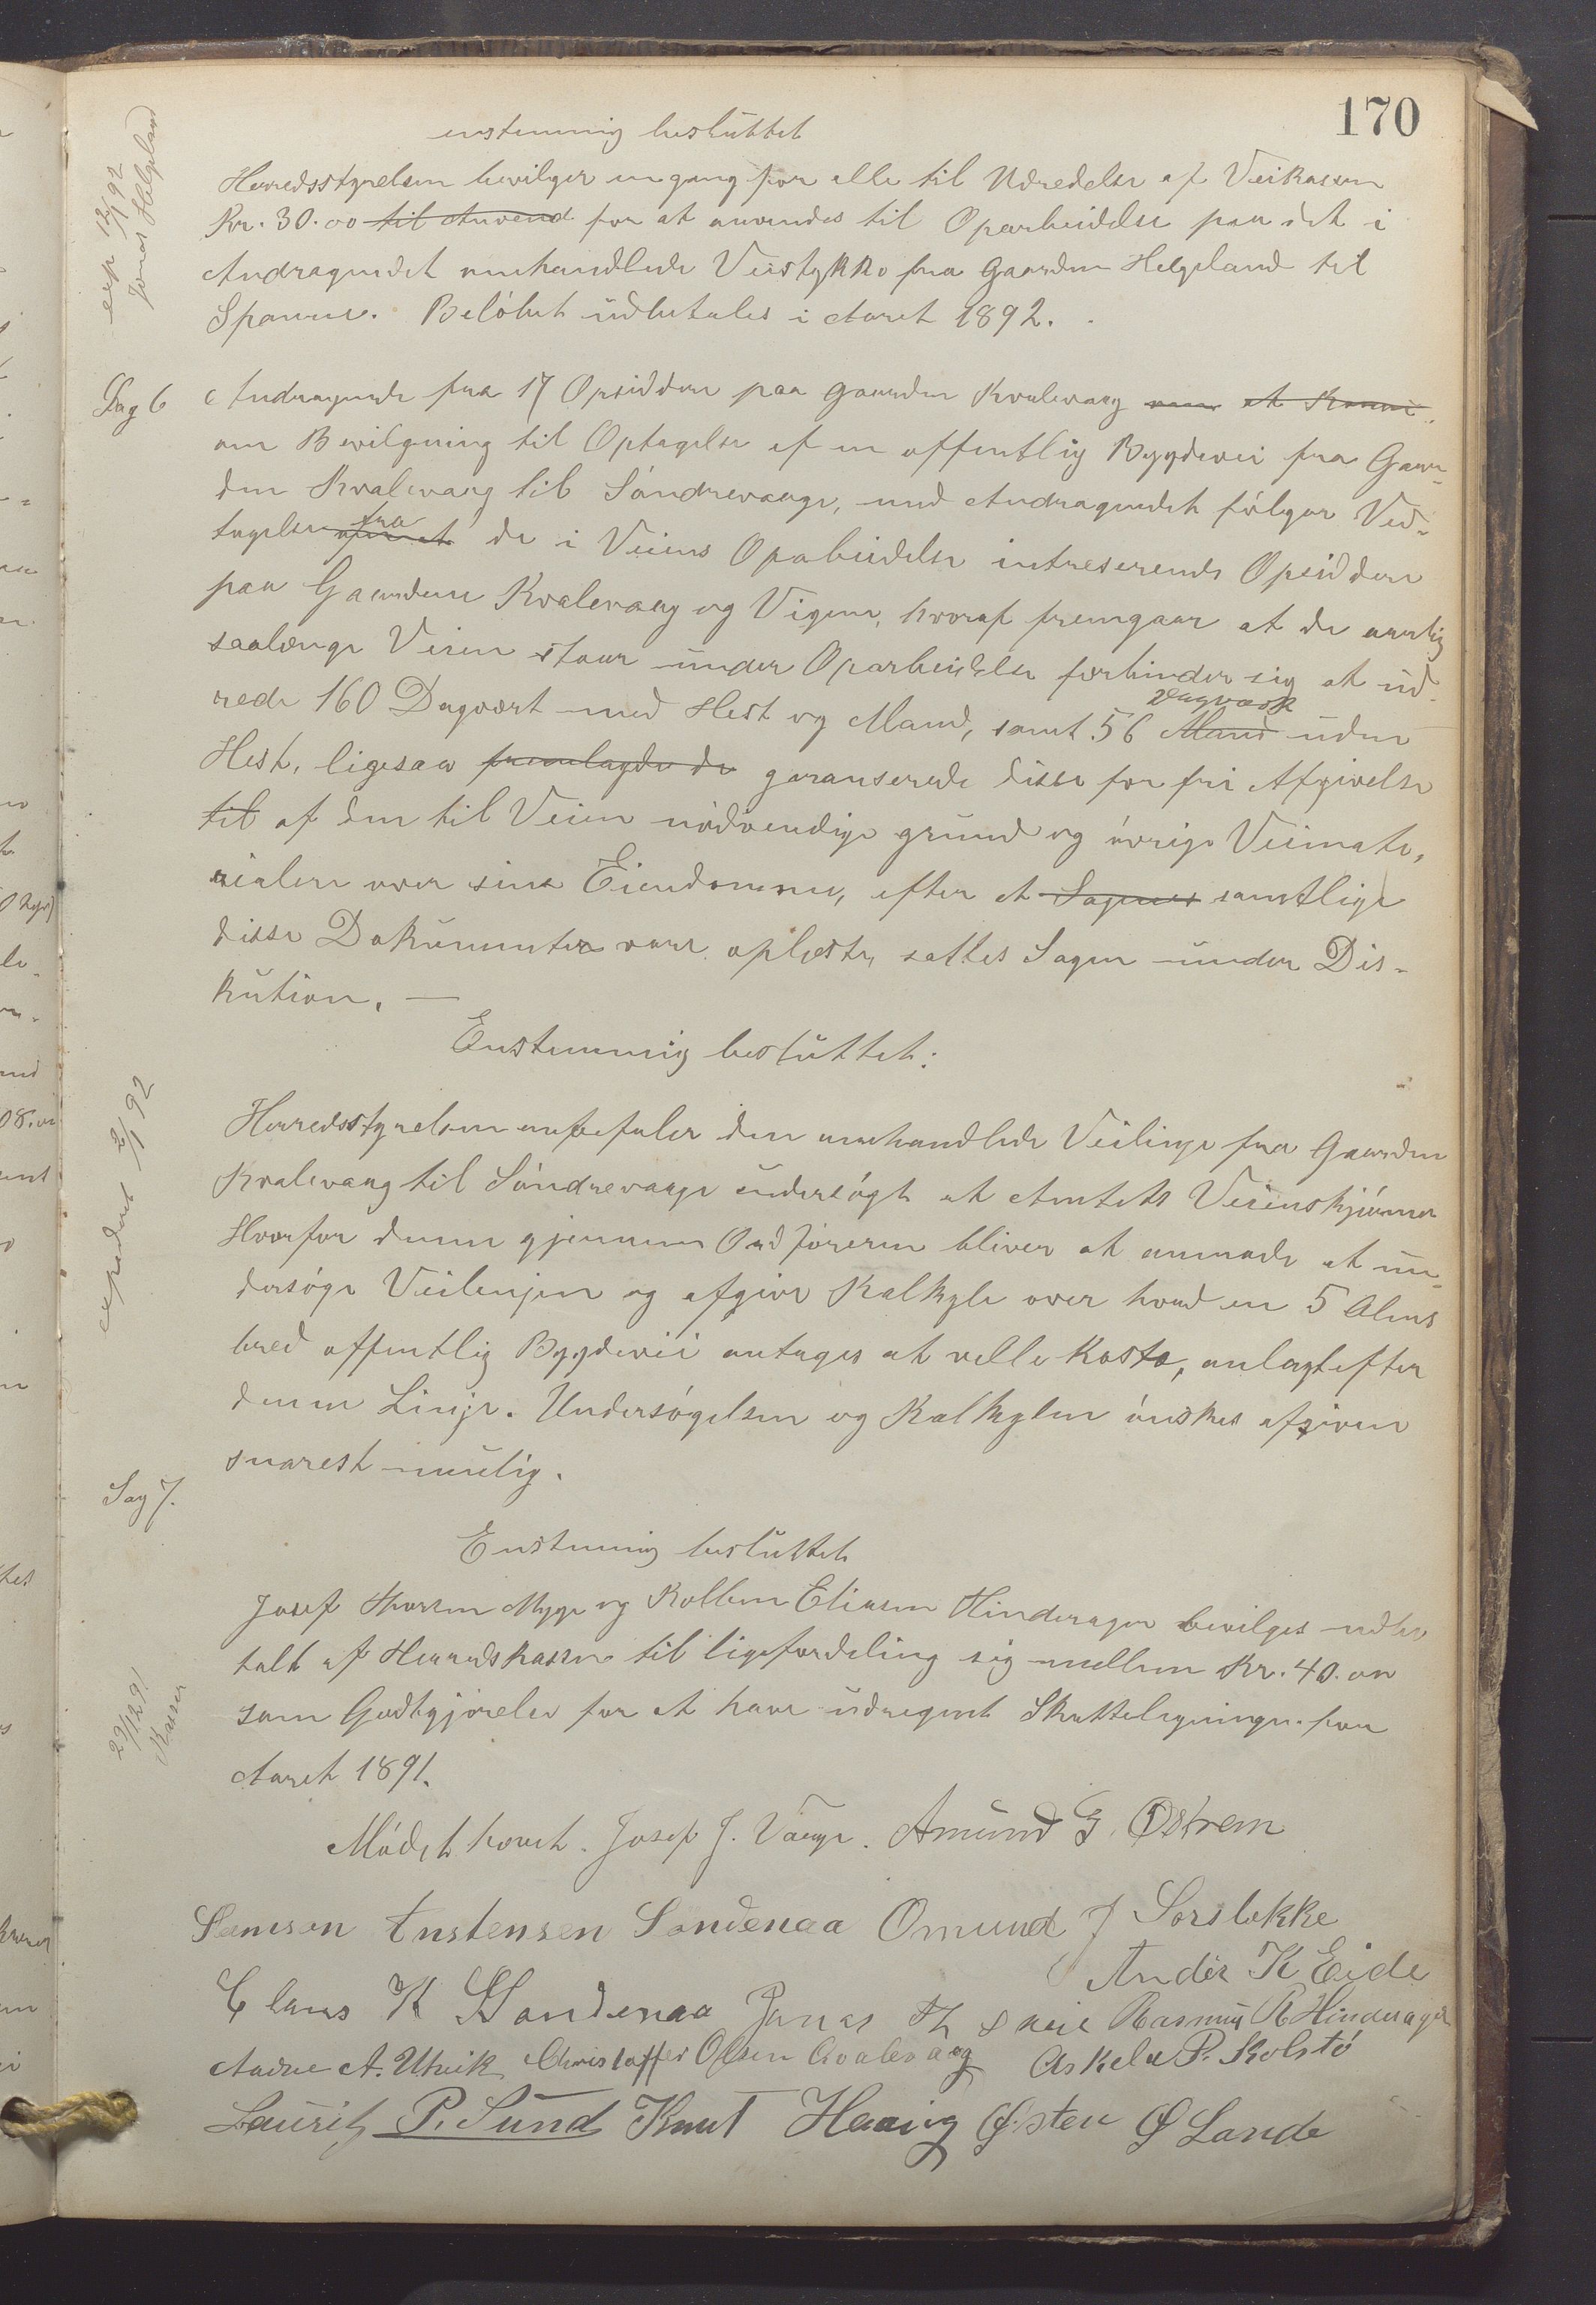 170
enstemmig besluttet
exp 12/1 92
Jonas Helgeland
Herredsstyrelsen bevilger engang for alle til Udredelse af Veikassen
Kr. 30.00 til Anvend for at anvendes til Oparbeidelse paa det i
Andragendet omhandlede Veistykke fra Gaarden Helgeland til
Spanne. Beløbet udbetales i Aaret 1892.
Sag 6
Andragende fra 17 Opsiddere paa Gaarden Kvalevaag
om Bevilgning til Optagelse af en offentlig Bygdevei fra Gaar-
den Kvalevaag til Søndrevaage, med Andragendet følger Ved-
tagelse fra de i Veiens Opabeidelse intreserende Opsiddere
paa Gaardene Kvalevaag og Vigene, hvoraf fremgaar at de aarlig
saalænge Veien staar under Oparbeidelse forbinder sig at ud-
rede 160 Dagvært med Hest og Mand, samt 56 Mand Dagværk uden
Hest, ligesaa fremlagde de garanserede disse for fri Afgivelse
til af den til Veien nødvendige grund og øvrige Veimate-
rialer over sine Eiendomme, efter at Sagens samtlige
disse Dokumenter vare oplæste, sattes Sagen under Dis-
kution. —
Enstemmig besluttet:
expedert 2/1 92
Herredsstyrelsen anbefaler den omhandlede Veilinje fra Gaarden
Kvalevaag til Søndrevaage undersøgt at Amtets Veiinskjønner
Hvorfor denne gjennem Ordføreren bliver at anmode at un-
dersøge Veilinjen og afgive Kalkyle over hvad en 5 Alens
bred offentlig Bygdevei antages at ville koste, anlagt efter
denne Linje. Undersøgelsen og Kalkylen ønskes afgiven
snarest mulig.
Sag 7.
Enstemmig besluttet
29/12 91
Kasser
Josef Thorsen Myge og Kolben Eliasen Hinderager bevilges udbe
talt af Herredskassen til ligefordeling sig mellem Kr. 40.00
som Godtgjørelse for at have udregnet Skatteligningen for
Aaret 1891.
Mødet hævet. Josef J. Vaage. Amund G. Østrem
Samson Anstensen Søndenaa Omund J Sørsbekke
Ander K Eide
Claus K Søndenaa Jonas Th Skeie Rasmus R Hinderager
Aadne A. Utvik Christoffer Olsen Kvalevaag Askeld P. Kolstø
Lauritz P. Sund Knut Hauig Østen Ø Lande